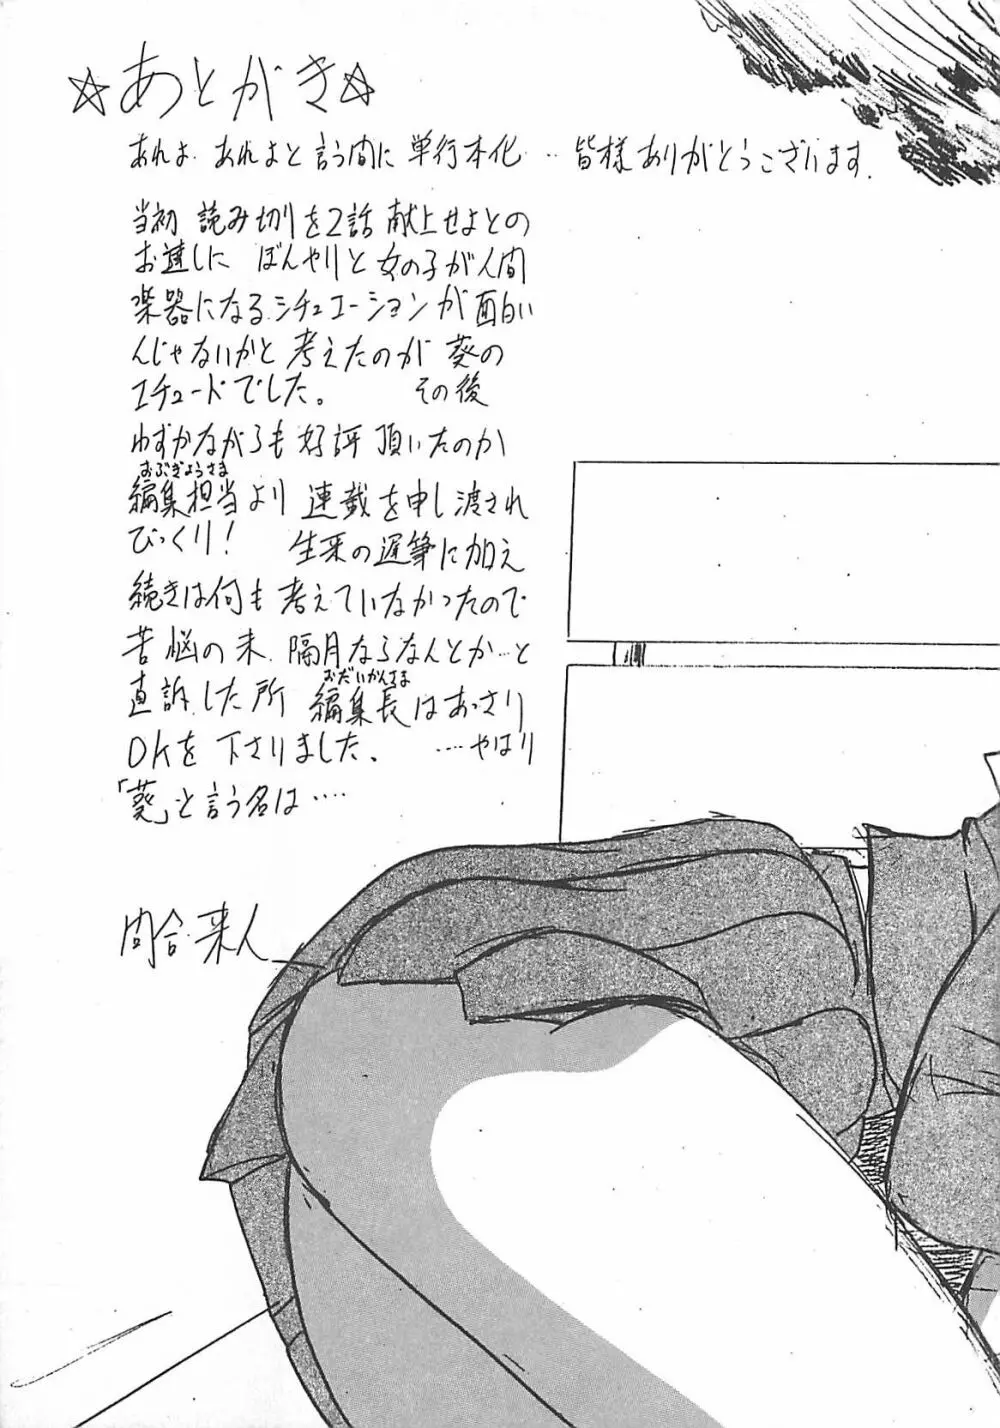 ☆あとがき☆
あれよ あれよと言う間に 単行本化… 皆様ありがとうございます.
当初 読み切りを2話 献上せよとの
お達しに ぼんやりと女の子が人間
楽器になるシチュエーションが面白い
んじゃないかと 考えたのが 葵の
エチュードでした。 その後
わずかながらも 好評 頂いたのか
おぶぎょうさま
編集担当より 連載を申し渡され
びっくり! 生来の遅筆に加え
続きは何も考えていなかったので
苦悩の末 隔月ならなんとか…と
直訴した所
おだいかんさま
編集長はあっさり
OKを下さりました。 ‥‥やはり
「葵」と言う名は‥‥
間合 来人